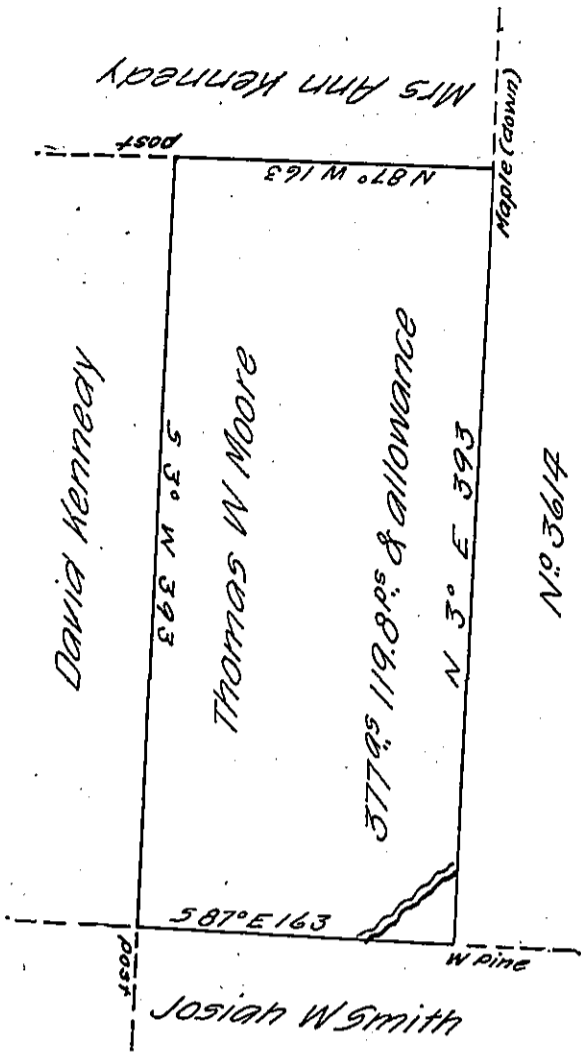 Mrs Ann Kennedy
post
N 87° W 163
Maple (down)
David Kennedy
S 3° W 393
Thomas W Moore
377 as 119.8 ps & allowance
N 3° E 393
No 3614
S 87° E 163
post
W Pine
Josiah W Smith